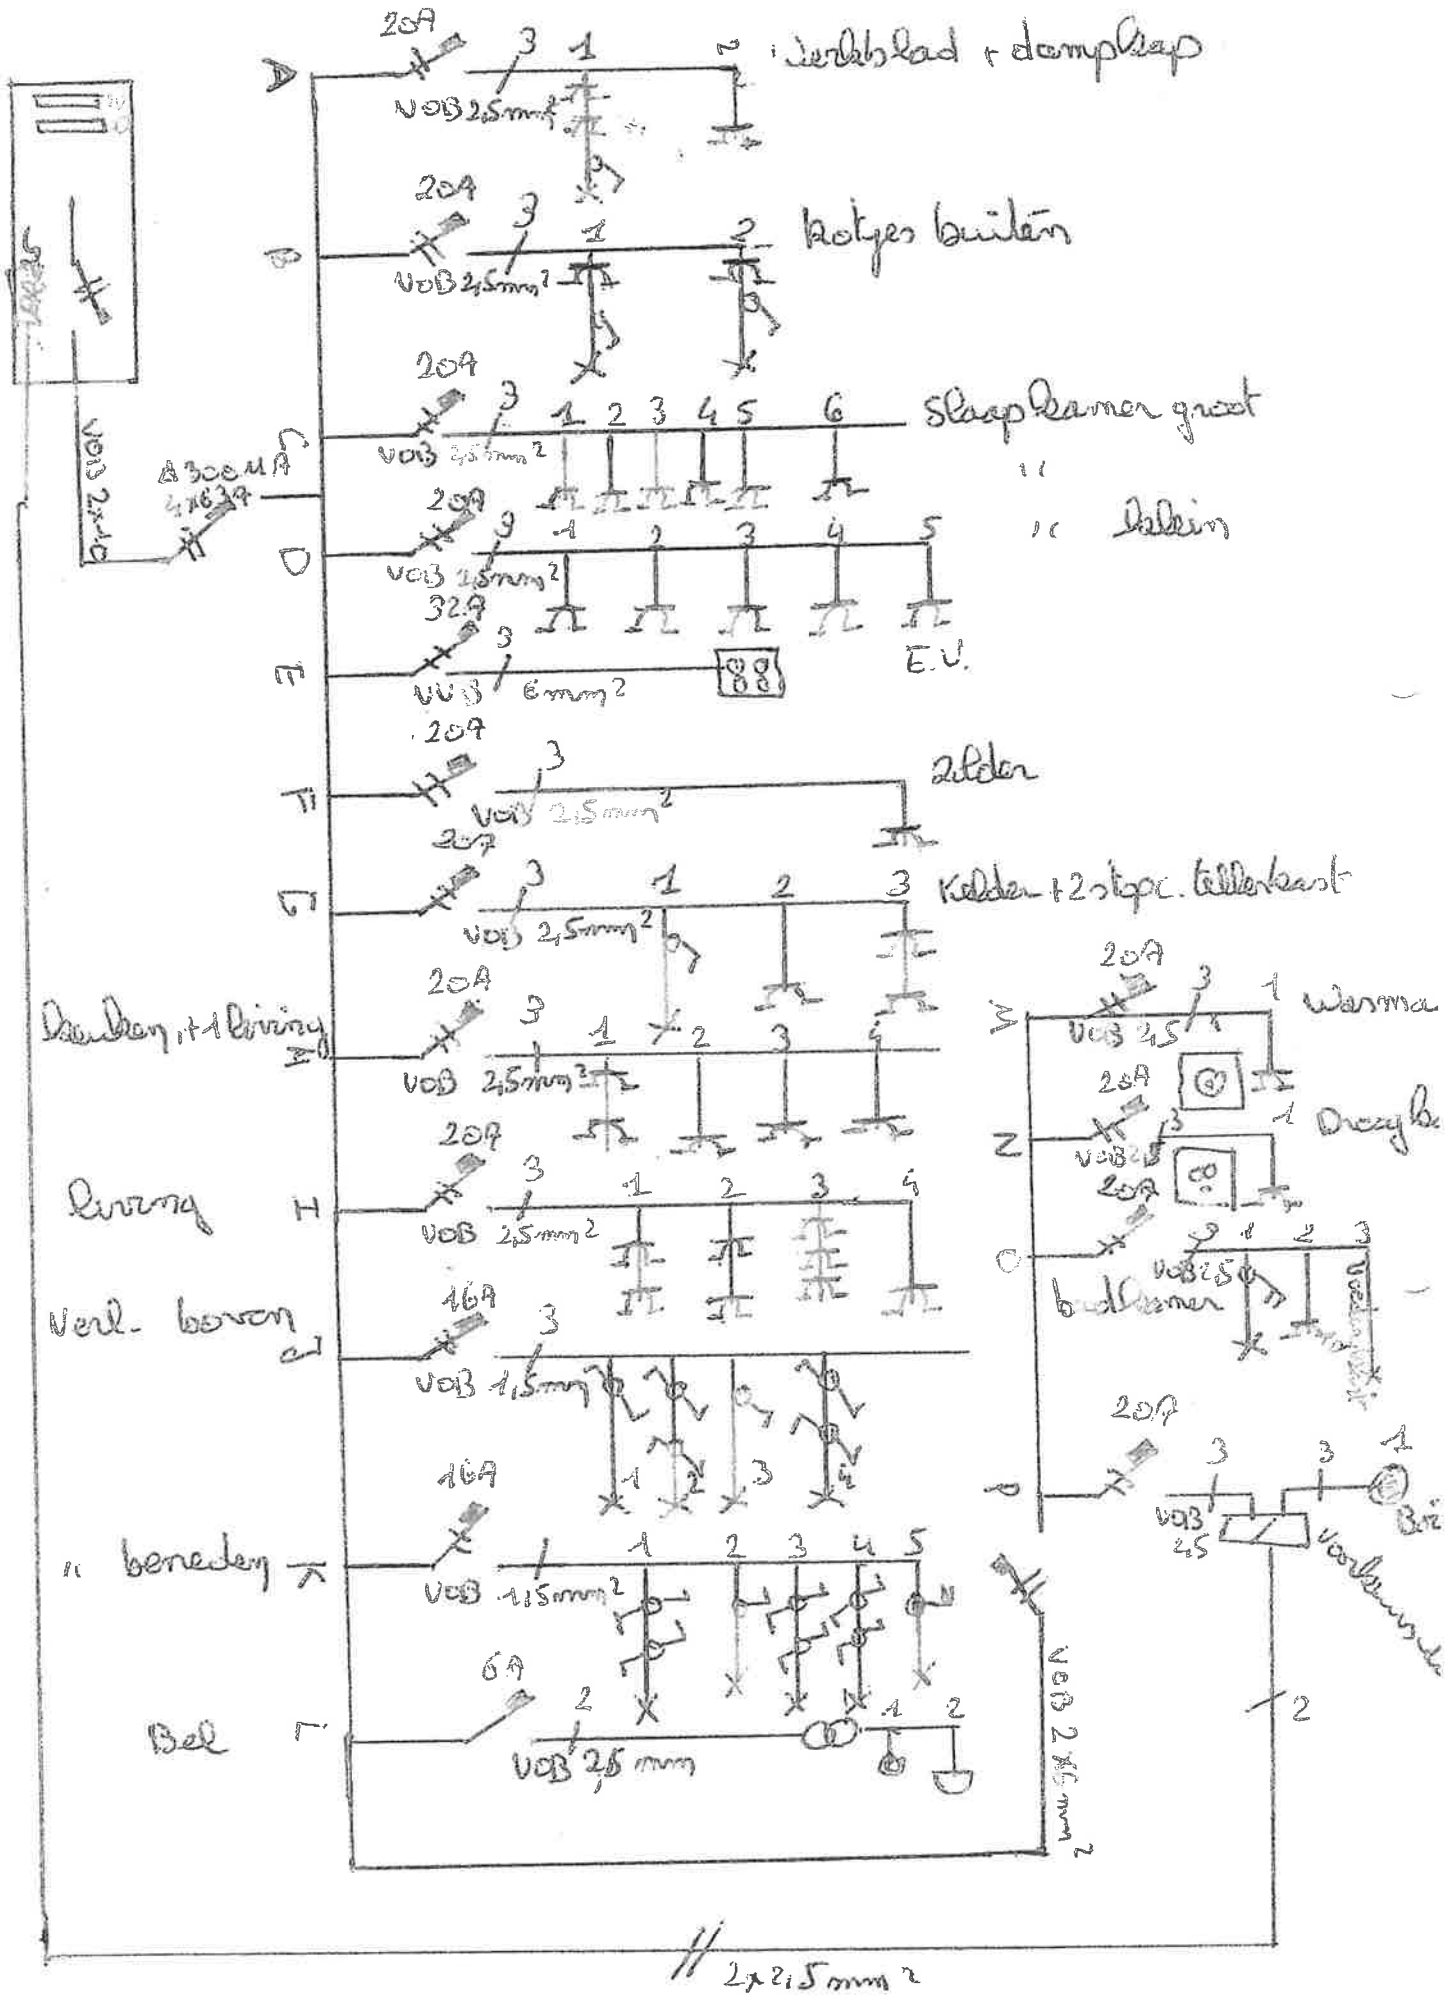 20A
A
3
1
2
werkblad + dampkap
VOB 2,5mm²
20A
B
3
1
2
kotjes buiten
VOB 2,5mm²
20A
C
3
1 2 3 4 5 6
Slaapkamer groot
VOB 2,5mm²
"
VOB 2x10
Δ300MA
4x63A
20A
D
3
1 2 3 4 5
" klein
VOB 2,5mm²
E.V.
32A
E
3
VVB 6mm²
20A
F
3
zolder
VOB 2,5mm²
20A
G
3
1 2 3
Kelder + 2 stopc. tellerkast
VOB 2,5mm²
keuken + 1 living
20A
3
1 2 3 4
VOB 2,5mm²
living
H
20A
3
1 2 3 4
VOB 2,5mm²
Verl. boven
J
16A
3
VOB 1,5mm
1 2 3 4
" beneden
K
16A
1 2 3 4 5
VOB 1,5mm²
Bel
L
6A
2
1 2
VOB 2,5 mm
VOB 2x6mm²
M
20A
3
1
Wasma
VOB 2,5
N
20A
3
1
VOB 2,5
O
20A
3
1 2 3
VOB 2,5
badkamer
P
20A
3
3
1
VOB
2,5
2
2x2,5mm²